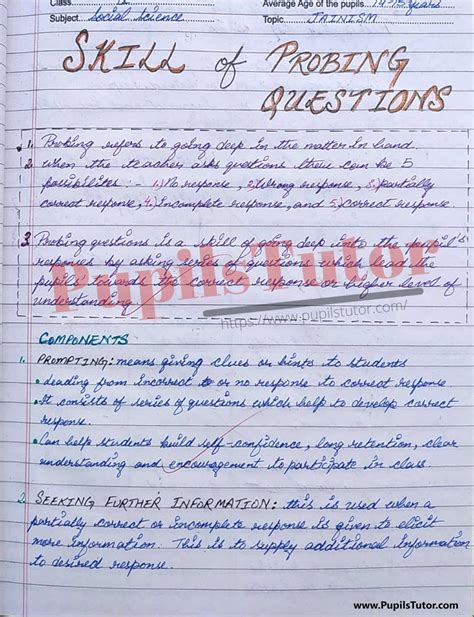 Class
Average Age of the pupils 14-15 years
Subject Social Science
Topic JAINISM
SKILL of PROBING
QUESTIONS
1. Probing refers to going deep in the matter in hand.
2. when the teacher asks questions there can be 5
possibilites :- 1.) No response, 2.) Wrong response, 3.) partially
correct response, 4.) incomplete response, and 5.) correct response
3. Probing questions is a skill of going deep into the pupil's
responses by asking series of questions which lead the
pupils towards the correct response or higher level of
understanding
PupilsTutor
https://www.pupilstutor.com/
COMPONENTS
1. PROMPTING: means giving clues or hints to students
• leading from incorrect to or no response to correct response.
• It consists of series of questions which help to develop correct
response.
• Can help students build self-confidence, long retention, clear
understanding and encouragement to participate in class.
2. SEEKING FURTHER INFORMATION: this is used when a
partially correct or incomplete response is given to elicit
more information. This is to supply additional information
to desired response.
www.PupilsTutor.com